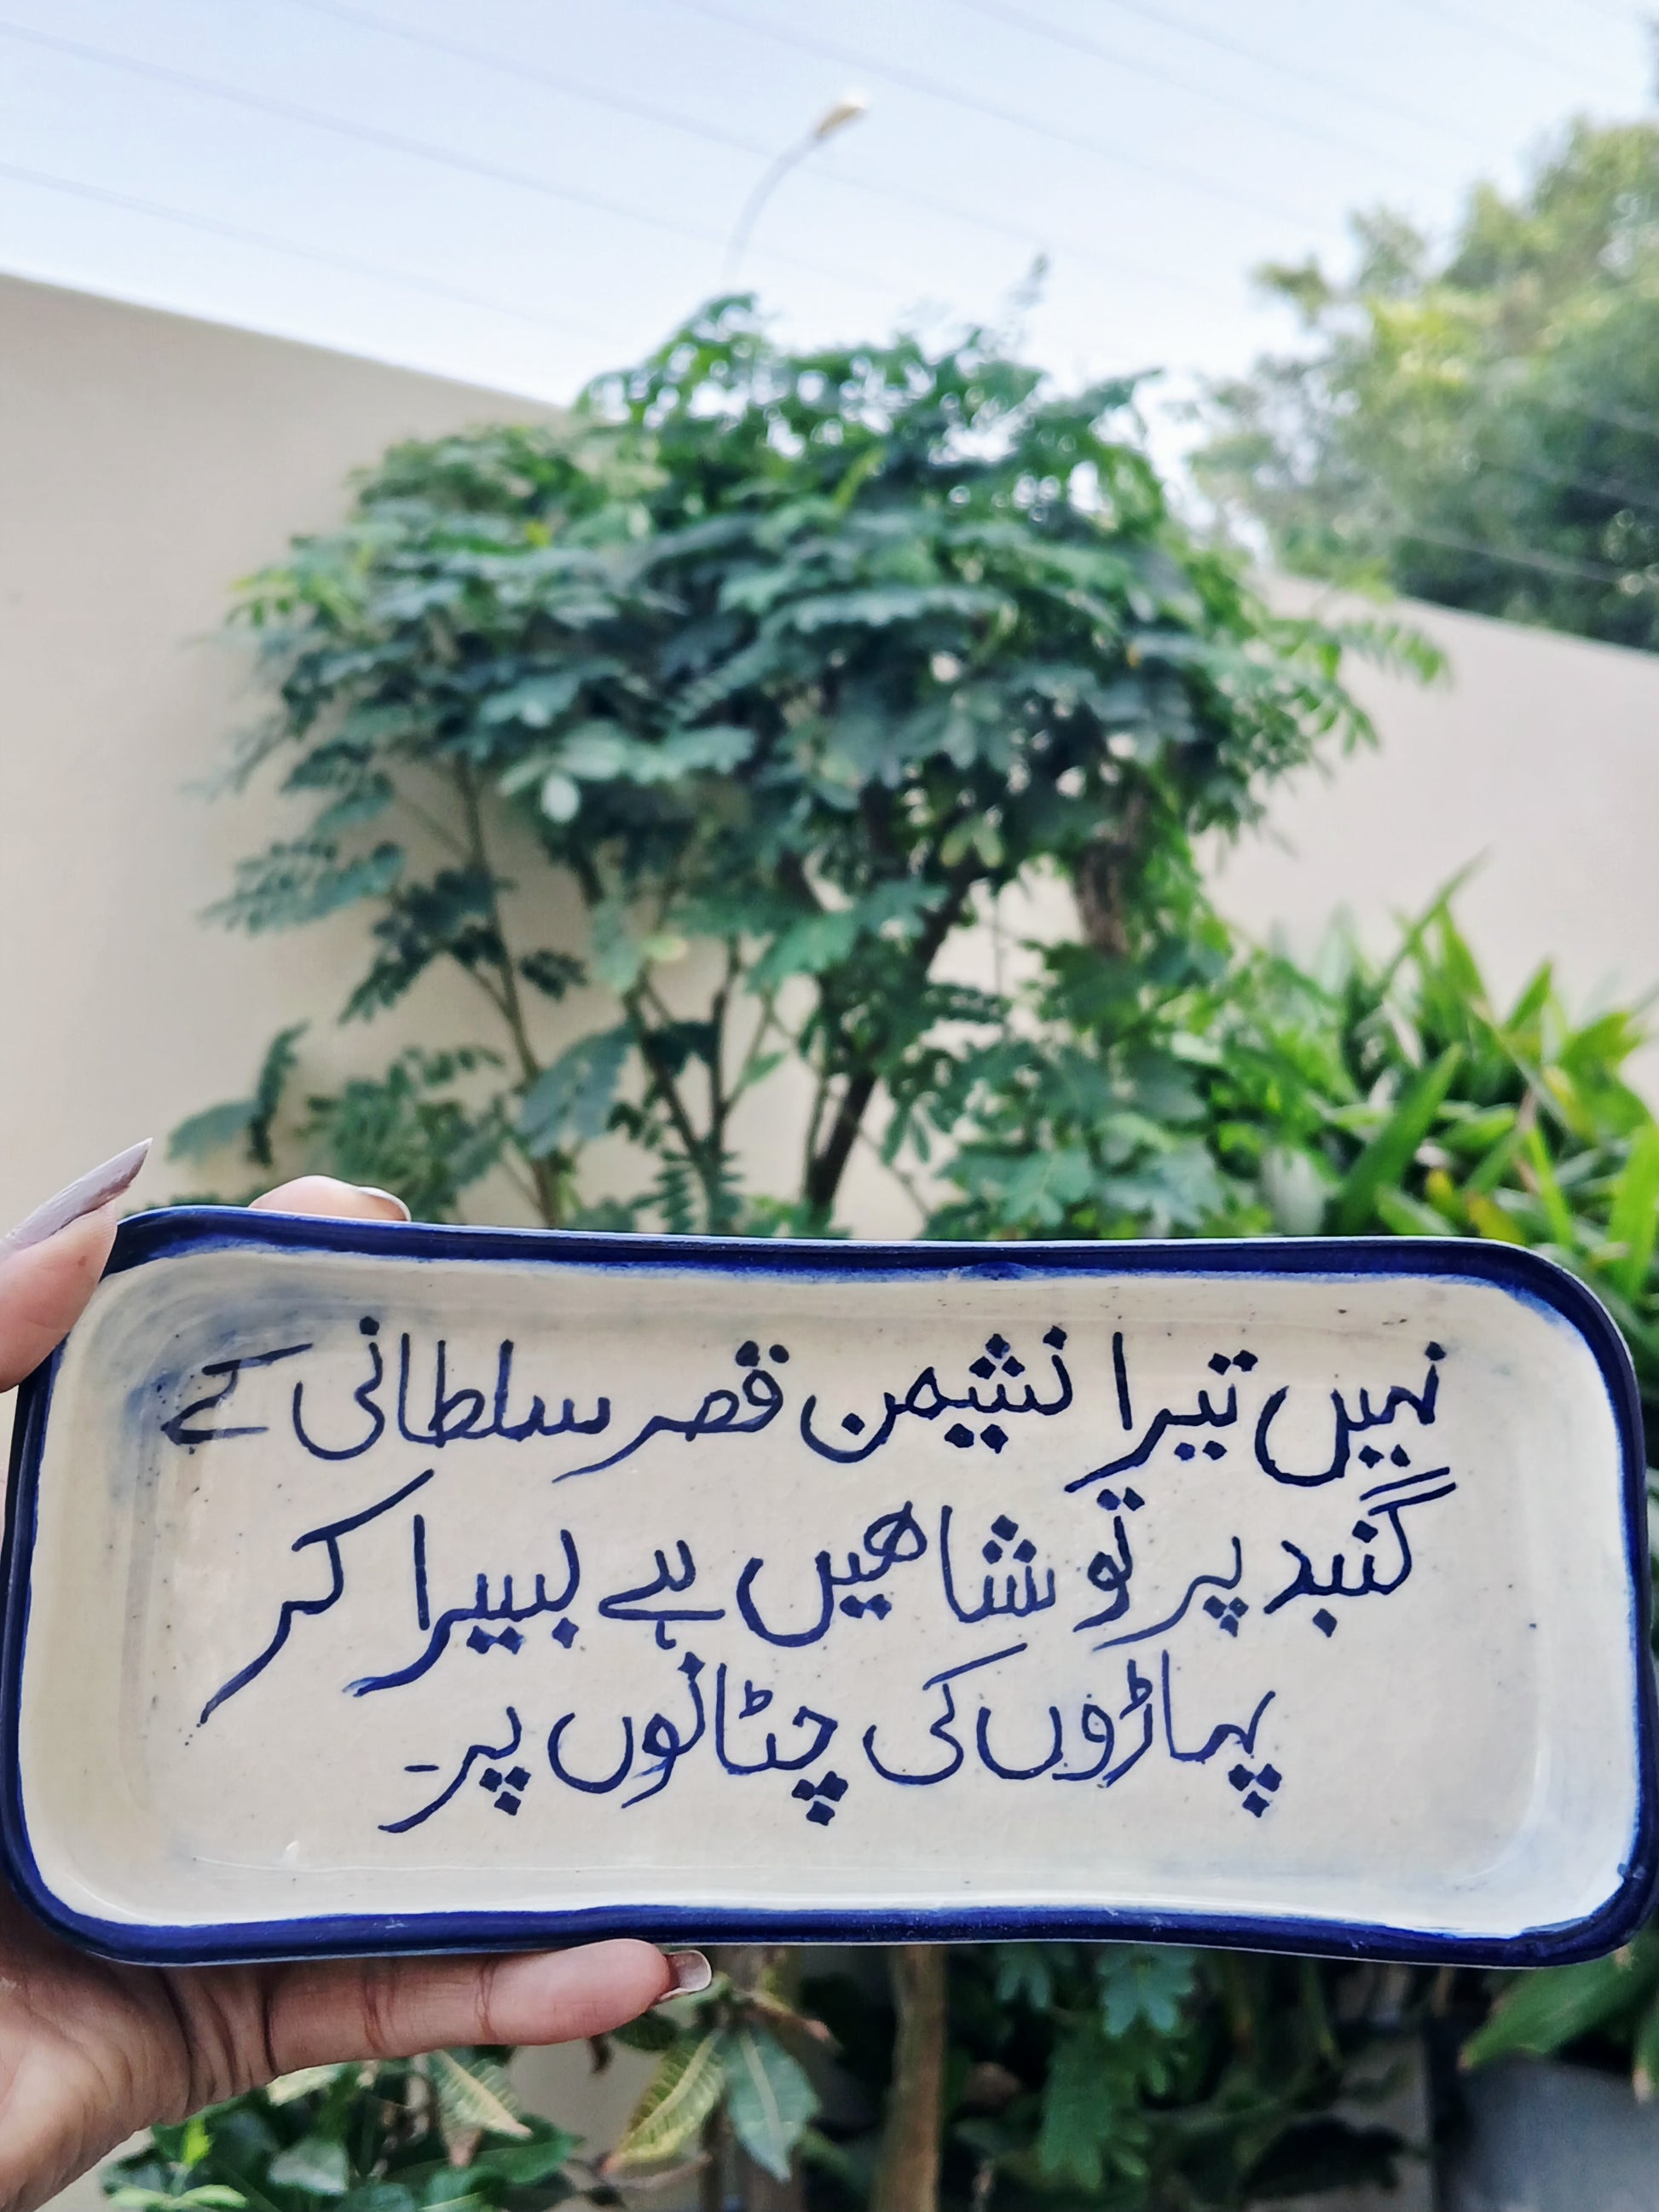 نہیں تیرا نشیمن قصر سلطانی کے
گنبد پر تو شاھیں ہے بسیرا کر
پہاڑوں کی چٹانوں پر۔